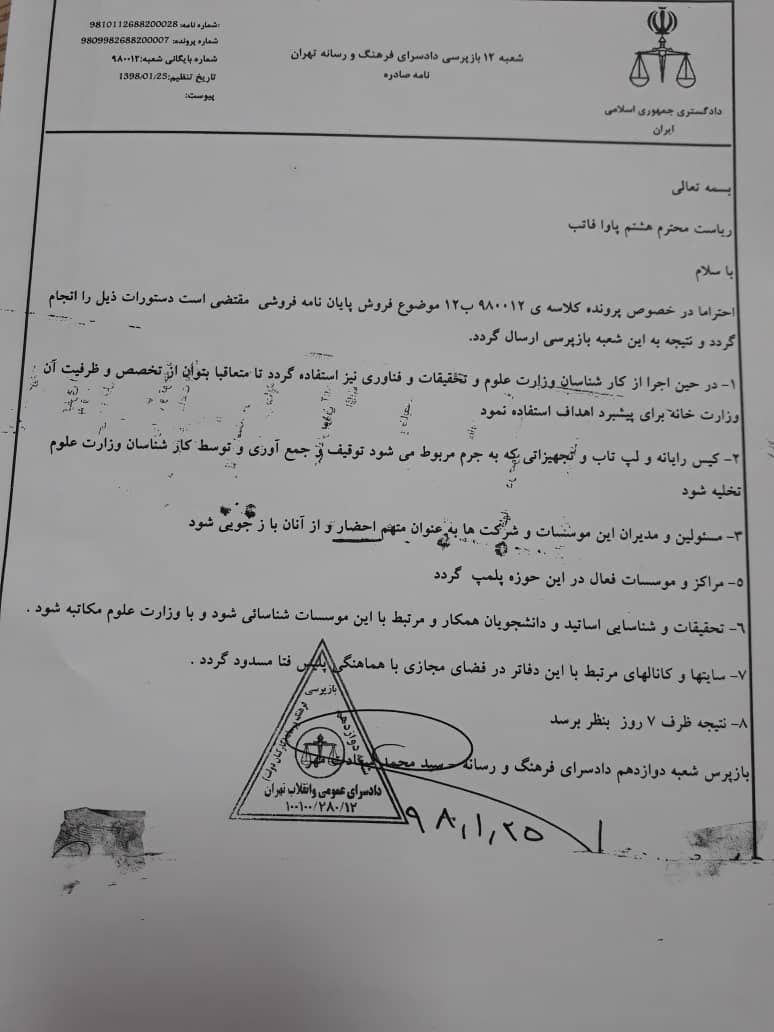 شماره نامه: 9810112688200028
شماره پرونده: 9809982688200007
شماره بایگانی شعبه: ۹۸۰۰۱۲
تاریخ تنظیم: 1398/01/25
پیوست:
شعبه ۱۲ بازپرسی دادسرای فرهنگ و رسانه تهران
نامه صادره
دادگستری جمهوری اسلامی
ایران
بسمه تعالی
ریاست محترم هشتم پاوا فاتب
با سلام
احتراما در خصوص پرونده کلاسه ی ۹۸۰۰۱۲ ب۱۲ موضوع فروش پایان نامه فروشی مقتضی است دستورات ذیل را انجام
گردد و نتیجه به این شعبه بازپرسی ارسال گردد.
۱- در حین اجرا از کار شناسان وزارت علوم و تحقیقات و فناوری نیز استفاده گردد تا متعاقبا بتوان از تخصص و ظرفیت آن
وزارت خانه برای پیشبرد اهداف استفاده نمود
۲- کیس رایانه و لپ تاب و تجهیزاتی که به جرم مربوط می شود توقیف و جمع آوری و توسط کار شناسان وزارت علوم
تخلیه شود
۳- مسئولین و مدیران این موسسات و شرکت ها به عنوان متهم احضار و از آنان با ز جویی شود
۵- مراکز و موسسات فعال در این حوزه پلمپ گردد
۶- تحقیقات و شناسایی اساتید و دانشجویان همکار و مرتبط با این موسسات شناسائی شود و با وزارت علوم مکاتبه شود .
۷- سایتها و کانالهای مرتبط با این دفاتر در فضای مجازی با هماهنگی پلیس فتا مسدود گردد .
۸- نتیجه ظرف ۷ روز بنظر برسد
بازپرس شعبه دوازدهم دادسرای فرهنگ و رسانه - سید محمد
بازپرسی
دادسرای عمومی وانقلاب تهران
۱۰۰۱۰۰/۲۸۰/۱۲
۹۸,۱,۲۵